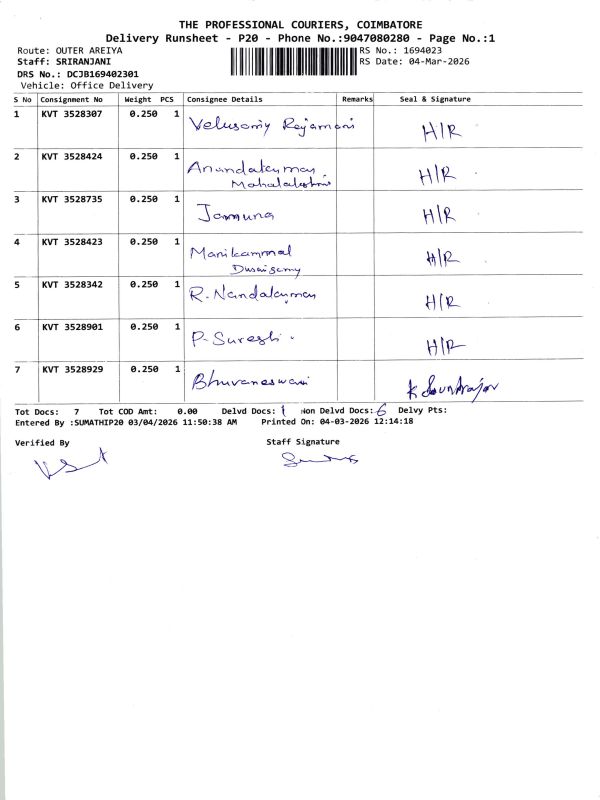 THE PROFESSIONAL COURIERS, COIMBATORE
Delivery Runsheet - P20 - Phone No.:9047080280 - Page No.:1
Route: OUTER AREIYA RS No.: 1694023
Staff: SRIRANJANI RS Date: 04-Mar-2026
DRS No.: DCJB169402301
Vehicle: Office Delivery
S No Consignment No Weight PCS Consignee Details Remarks Seal & Signature
1 KVT 3528307 0.250 1 Velusamy Rajamani H/R
2 KVT 3528424 0.250 1 Anandakumar H/R
Mahalakshmi
3 KVT 3528735 0.250 1 Jamuna H/R
4 KVT 3528423 0.250 1 Manikammal H/R
Duraisamy
5 KVT 3528342 0.250 1 R. Nandakumar H/R
6 KVT 3528901 0.250 1 P. Suresh H/R
7 KVT 3528929 0.250 1 Bhuvaneswari
Tot Docs: 7 Tot COD Amt: 0.00 Delvd Docs: 1 Non Delvd Docs: 6 Delvy Pts:
Entered By :SUMATHIP20 03/04/2026 11:50:38 AM Printed On: 04-03-2026 12:14:18
Verified By Staff Signature